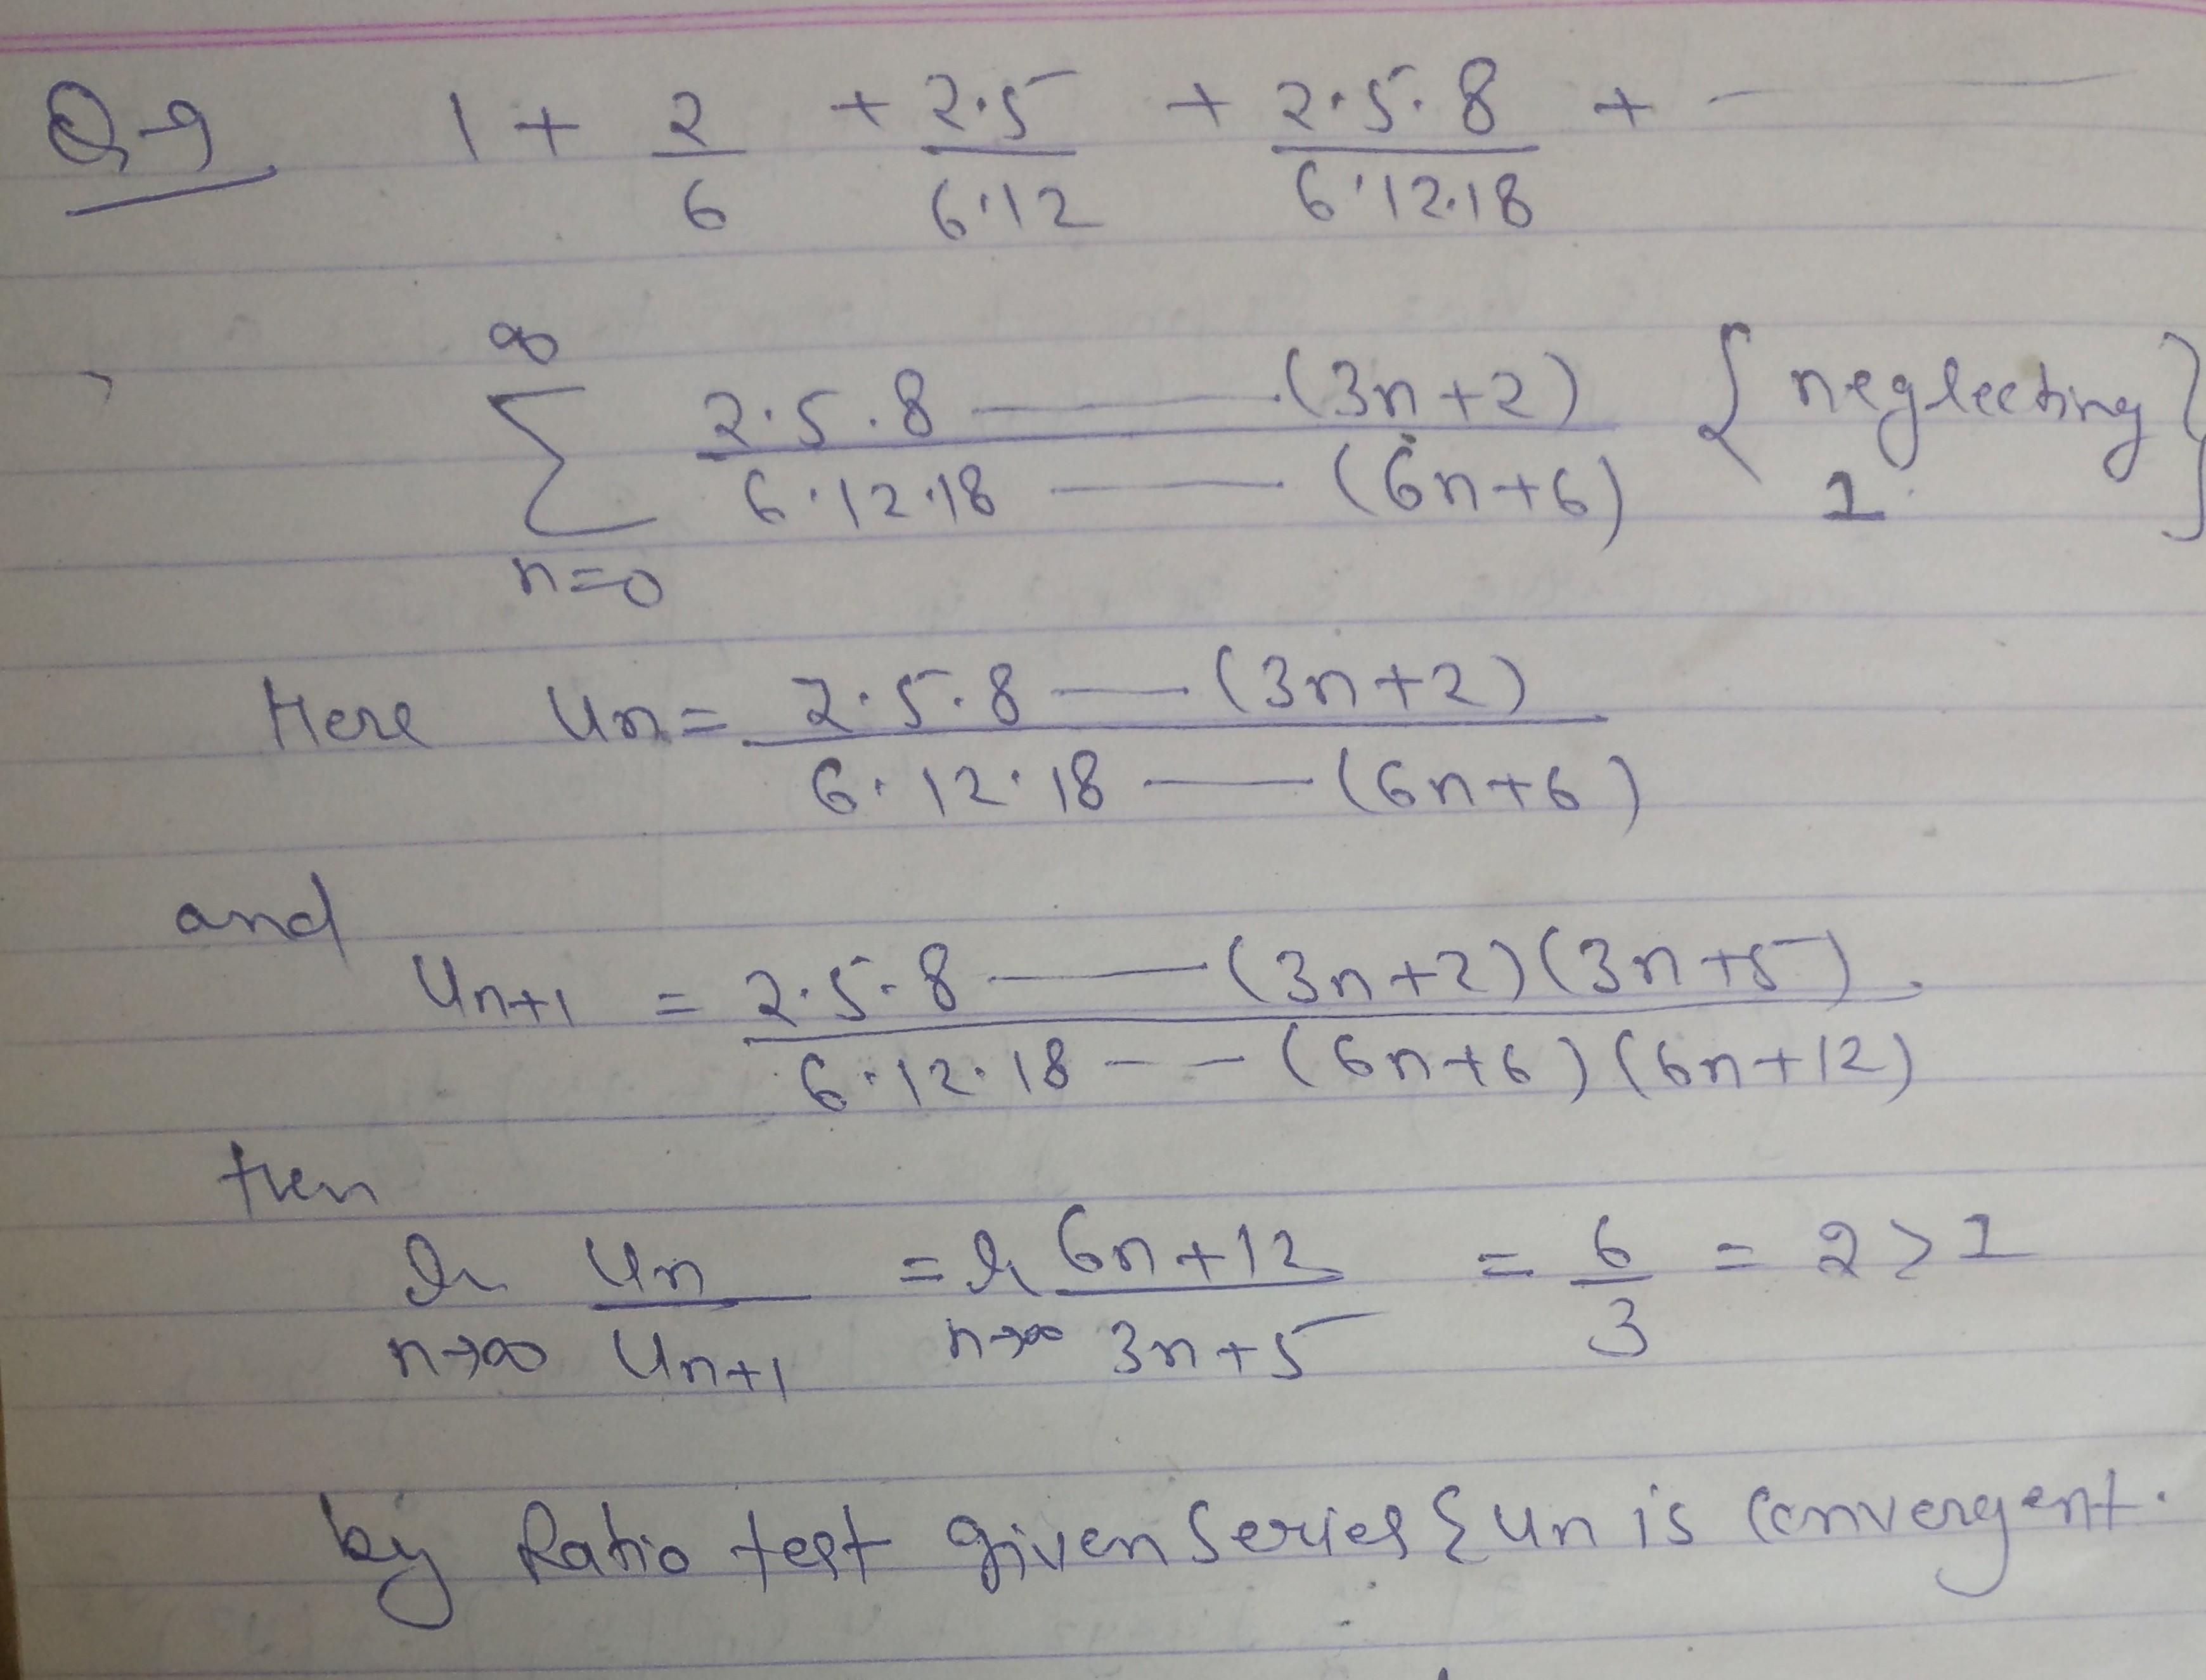 Q→ 1 + 2/6 + 2·5/6·12 + 2·5·8/6·12·18 + ——
∞ ∑ n=0 2·5·8 —— (3n+2) / 6·12·18 —— (6n+6) { neglecting 1 }
Here Un = 2·5·8 —— (3n+2) / 6·12·18 —— (6n+6)
and
Un+1 = 2·5·8 —— (3n+2)(3n+5) / 6·12·18 -- — (6n+6)(6n+12)
then
lt n→∞ Un/Un+1 = lt n→∞ 6n+12/3n+5 = 6/3 = 2 > 1
by Ratio test given series ∑ un is convergent.